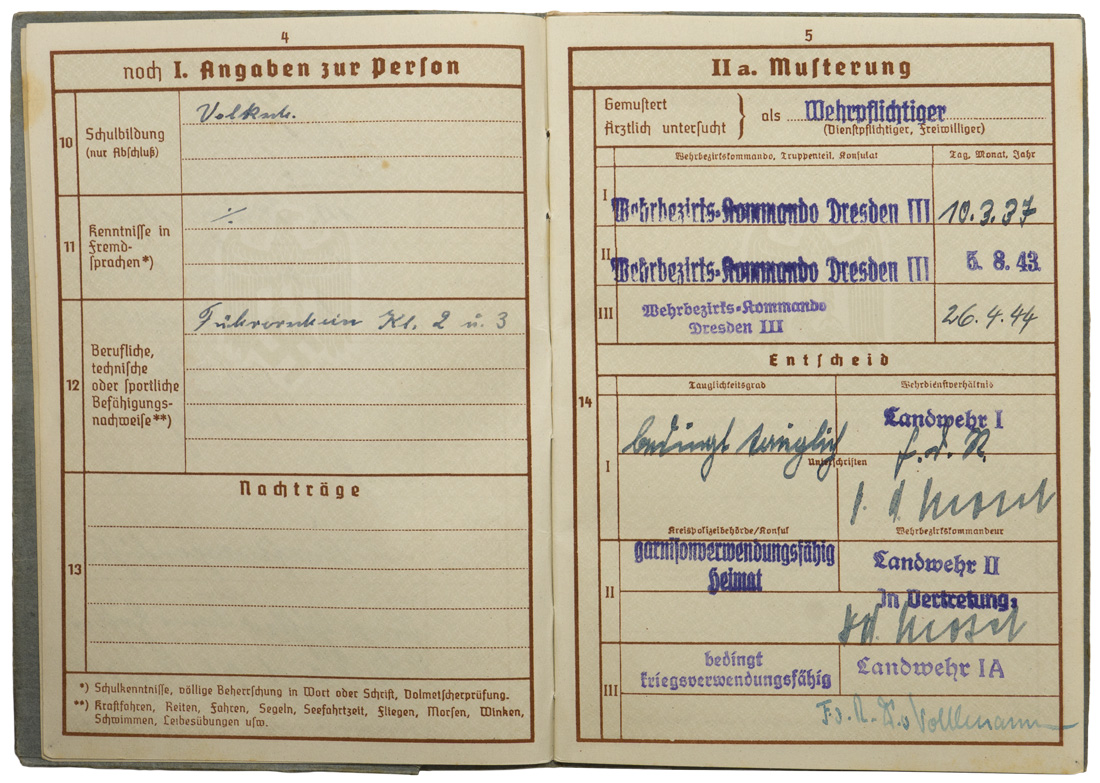 4
noch I. Angaben zur Person
10
Schulbildung
(nur Abschluß)
Volksch.
11
Kenntnisse in
Fremd-
sprachen*)
·/.
12
Berufliche,
technische
oder sportliche
Befähigungs-
nachweise**)
Führerschein Kl. 2 u. 3
Nachträge
13
*) Schulkenntnisse, völlige Beherrschung in Wort oder Schrift, Dolmetscherprüfung.
**) Kraftfahren, Reiten, Fahren, Segeln, Seefahrtzeit, Fliegen, Morsen, Winken,
Schwimmen, Leibesübungen usw.
5
IIa. Musterung
Gemustert
Ärztlich untersucht
als Wehrpflichtiger
(Dienstpflichtiger, Freiwilliger)
Wehrbezirkskommando, Truppenteil, Konsulat
Tag, Monat, Jahr
I Wehrbezirks-Kommando Dresden III 10.3.37
II Wehrbezirks-Kommando Dresden III 5. 8. 43
III Wehrbezirks-Kommando
Dresden III
26.4.44
Entscheid
14
Tauglichkeitsgrad
Wehrdienstverhältnis
I
bedingt tauglich
Landwehr I
Unterschriften
Kreispolizeibehörde/Konsul
Wehrbezirkskommandeur
II
garnisonverwendungsfähig
Heimat
Landwehr II
In Vertretung:
III
bedingt
kriegsverwendungsfähig
Landwehr IA